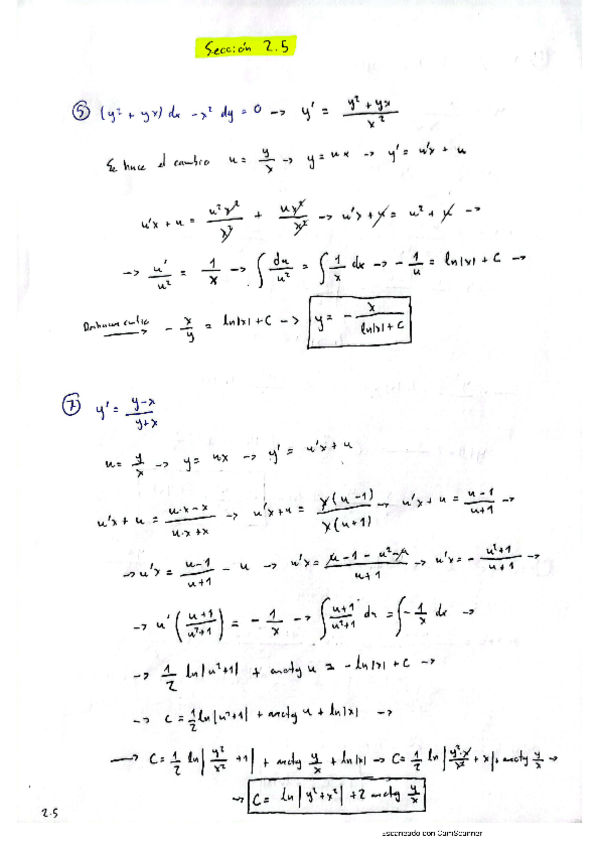 Sección 2.5
⑤ (y² + yx) dx - x² dy = 0 -> y' = (y² + yx)/x²
Se hace el cambio u = y/x -> y = ux -> y' = u'x + u
u'x + u = u²x²/x² + ux²/x² -> u'x + u = u² + u ->
-> u'/u² = 1/x -> ∫ du/u² = ∫ 1/x dx -> - 1/u = ln|x| + C ->
- x/y = ln|x| + C -> y = - x/(ln|x| + C)
⑦ y' = (y-x)/(y+x)
u = y/x -> y = ux -> y' = u'x + u
u'x + u = (u·x - x)/(u·x + x) -> u'x + u = x(u-1)/x(u+1) -> u'x + u = (u-1)/(u+1) ->
-> u'x = (u-1)/(u+1) - u -> u'x = (u - 1 - u² - u)/(u+1) -> u'x = - (u²+1)/(u+1) ->
-> u' ((u+1)/(u²+1)) = - 1/x -> ∫ (u+1)/(u²+1) du = ∫ - 1/x dx ->
-> 1/2 ln|u²+1| + arctg u = - ln|x| + C ->
-> C = 1/2 ln|u²+1| + arctg u + ln|x| ->
-> C = 1/2 ln|y²/x² + 1| + arctg y/x + ln|x| -> C = 1/2 ln|y²·x/x² + x| + arctg y/x ->
-> C = ln|y² + x²| + 2 arctg y/x
2.5
Escaneado con CamScanner